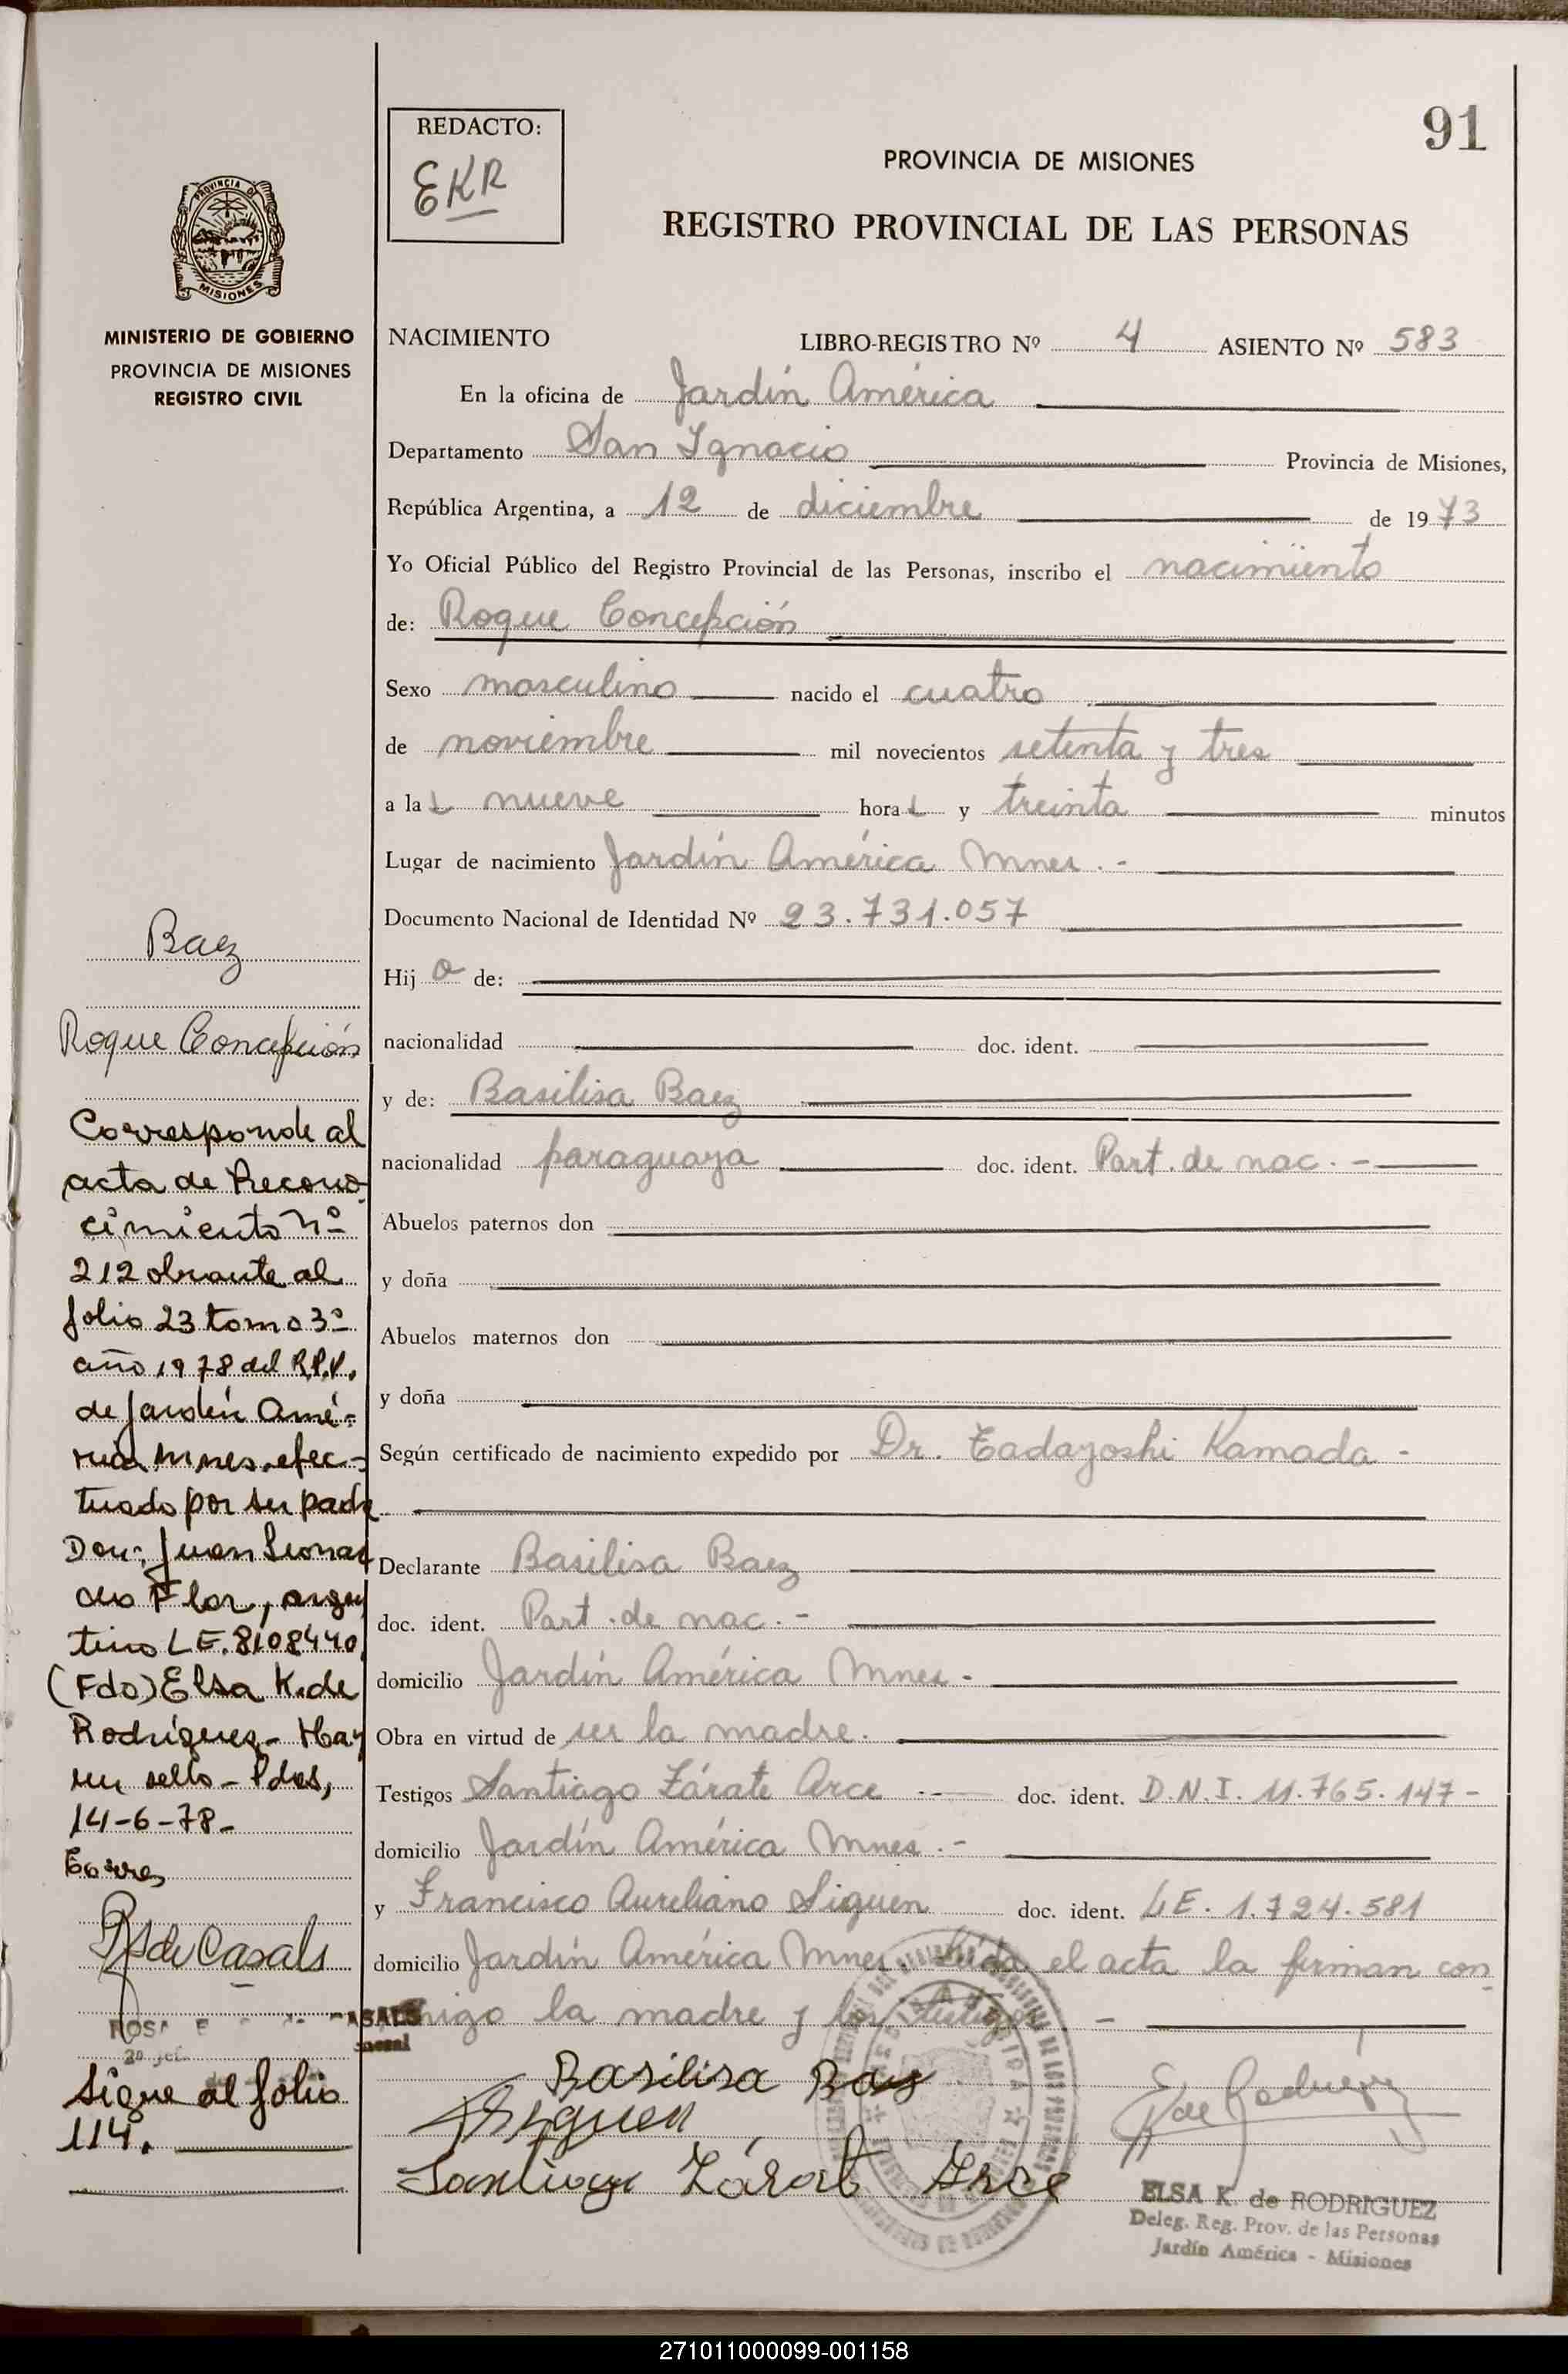 91
REDACTO:
EKR
PROVINCIA DE MISIONES
REGISTRO PROVINCIAL DE LAS PERSONAS
PROVINCIA DE
MISIONES
MINISTERIO DE GOBIERNO
PROVINCIA DE MISIONES
REGISTRO CIVIL
NACIMIENTO LIBRO-REGISTRO Nº 4 ASIENTO Nº 583
En la oficina de Jardín América
Departamento San Ignacio Provincia de Misiones,
República Argentina, a 12 de diciembre de 1973
Yo Oficial Público del Registro Provincial de las Personas, inscribo el nacimiento
de: Roque Concepción
Sexo masculino nacido el cuatro
de noviembre mil novecientos setenta y tres
a las nueve horas y treinta minutos
Lugar de nacimiento Jardín América Mnes.-
Documento Nacional de Identidad Nº 23.731.057
Hijo de:
nacionalidad doc. ident.
y de: Basilisa Baez
nacionalidad paraguaya doc. ident. Part. de nac.-
Abuelos paternos don
y doña
Abuelos maternos don
y doña
Según certificado de nacimiento expedido por Dr. Tadayoshi Kamada -
Declarante Basilisa Baez
doc. ident. Part. de nac.-
domicilio Jardín América Mnes-
Obra en virtud de ser la madre.
Testigos Santiago Zárate Arce doc. ident. D.N.I. 11.765.147-
domicilio Jardín América Mnes.-
y Francisco Aureliano Siguen doc. ident. L.E. 1.724.581
domicilio Jardín América Mnes. Leída el acta la firman con
migo la madre y los testigos -
Basilisa Baez
Siguen
Santiago Zárate Arce
E K de Rodriguez
ELSA K. de RODRIGUEZ
Deleg. Reg. Prov. de las Personas
Jardín América - Misiones
Baez
Roque Concepción
Corresponde al
acta de Recono
cimiento nº
212 obrante al
folio 23 tomo 3º
año 1978 del R.P.P.
de Jardín Amé-
rica Mnes. efec-
tuado por su padre
Don: Juan Leonar
do Flor, argen
tino L E. 8108440
(Fdo) Elsa K. de
Rodríguez- Hay
un sello- Pdas,
14-6-78-
Torres
de Casals
Sigue al folio
114.
271011000099-001158